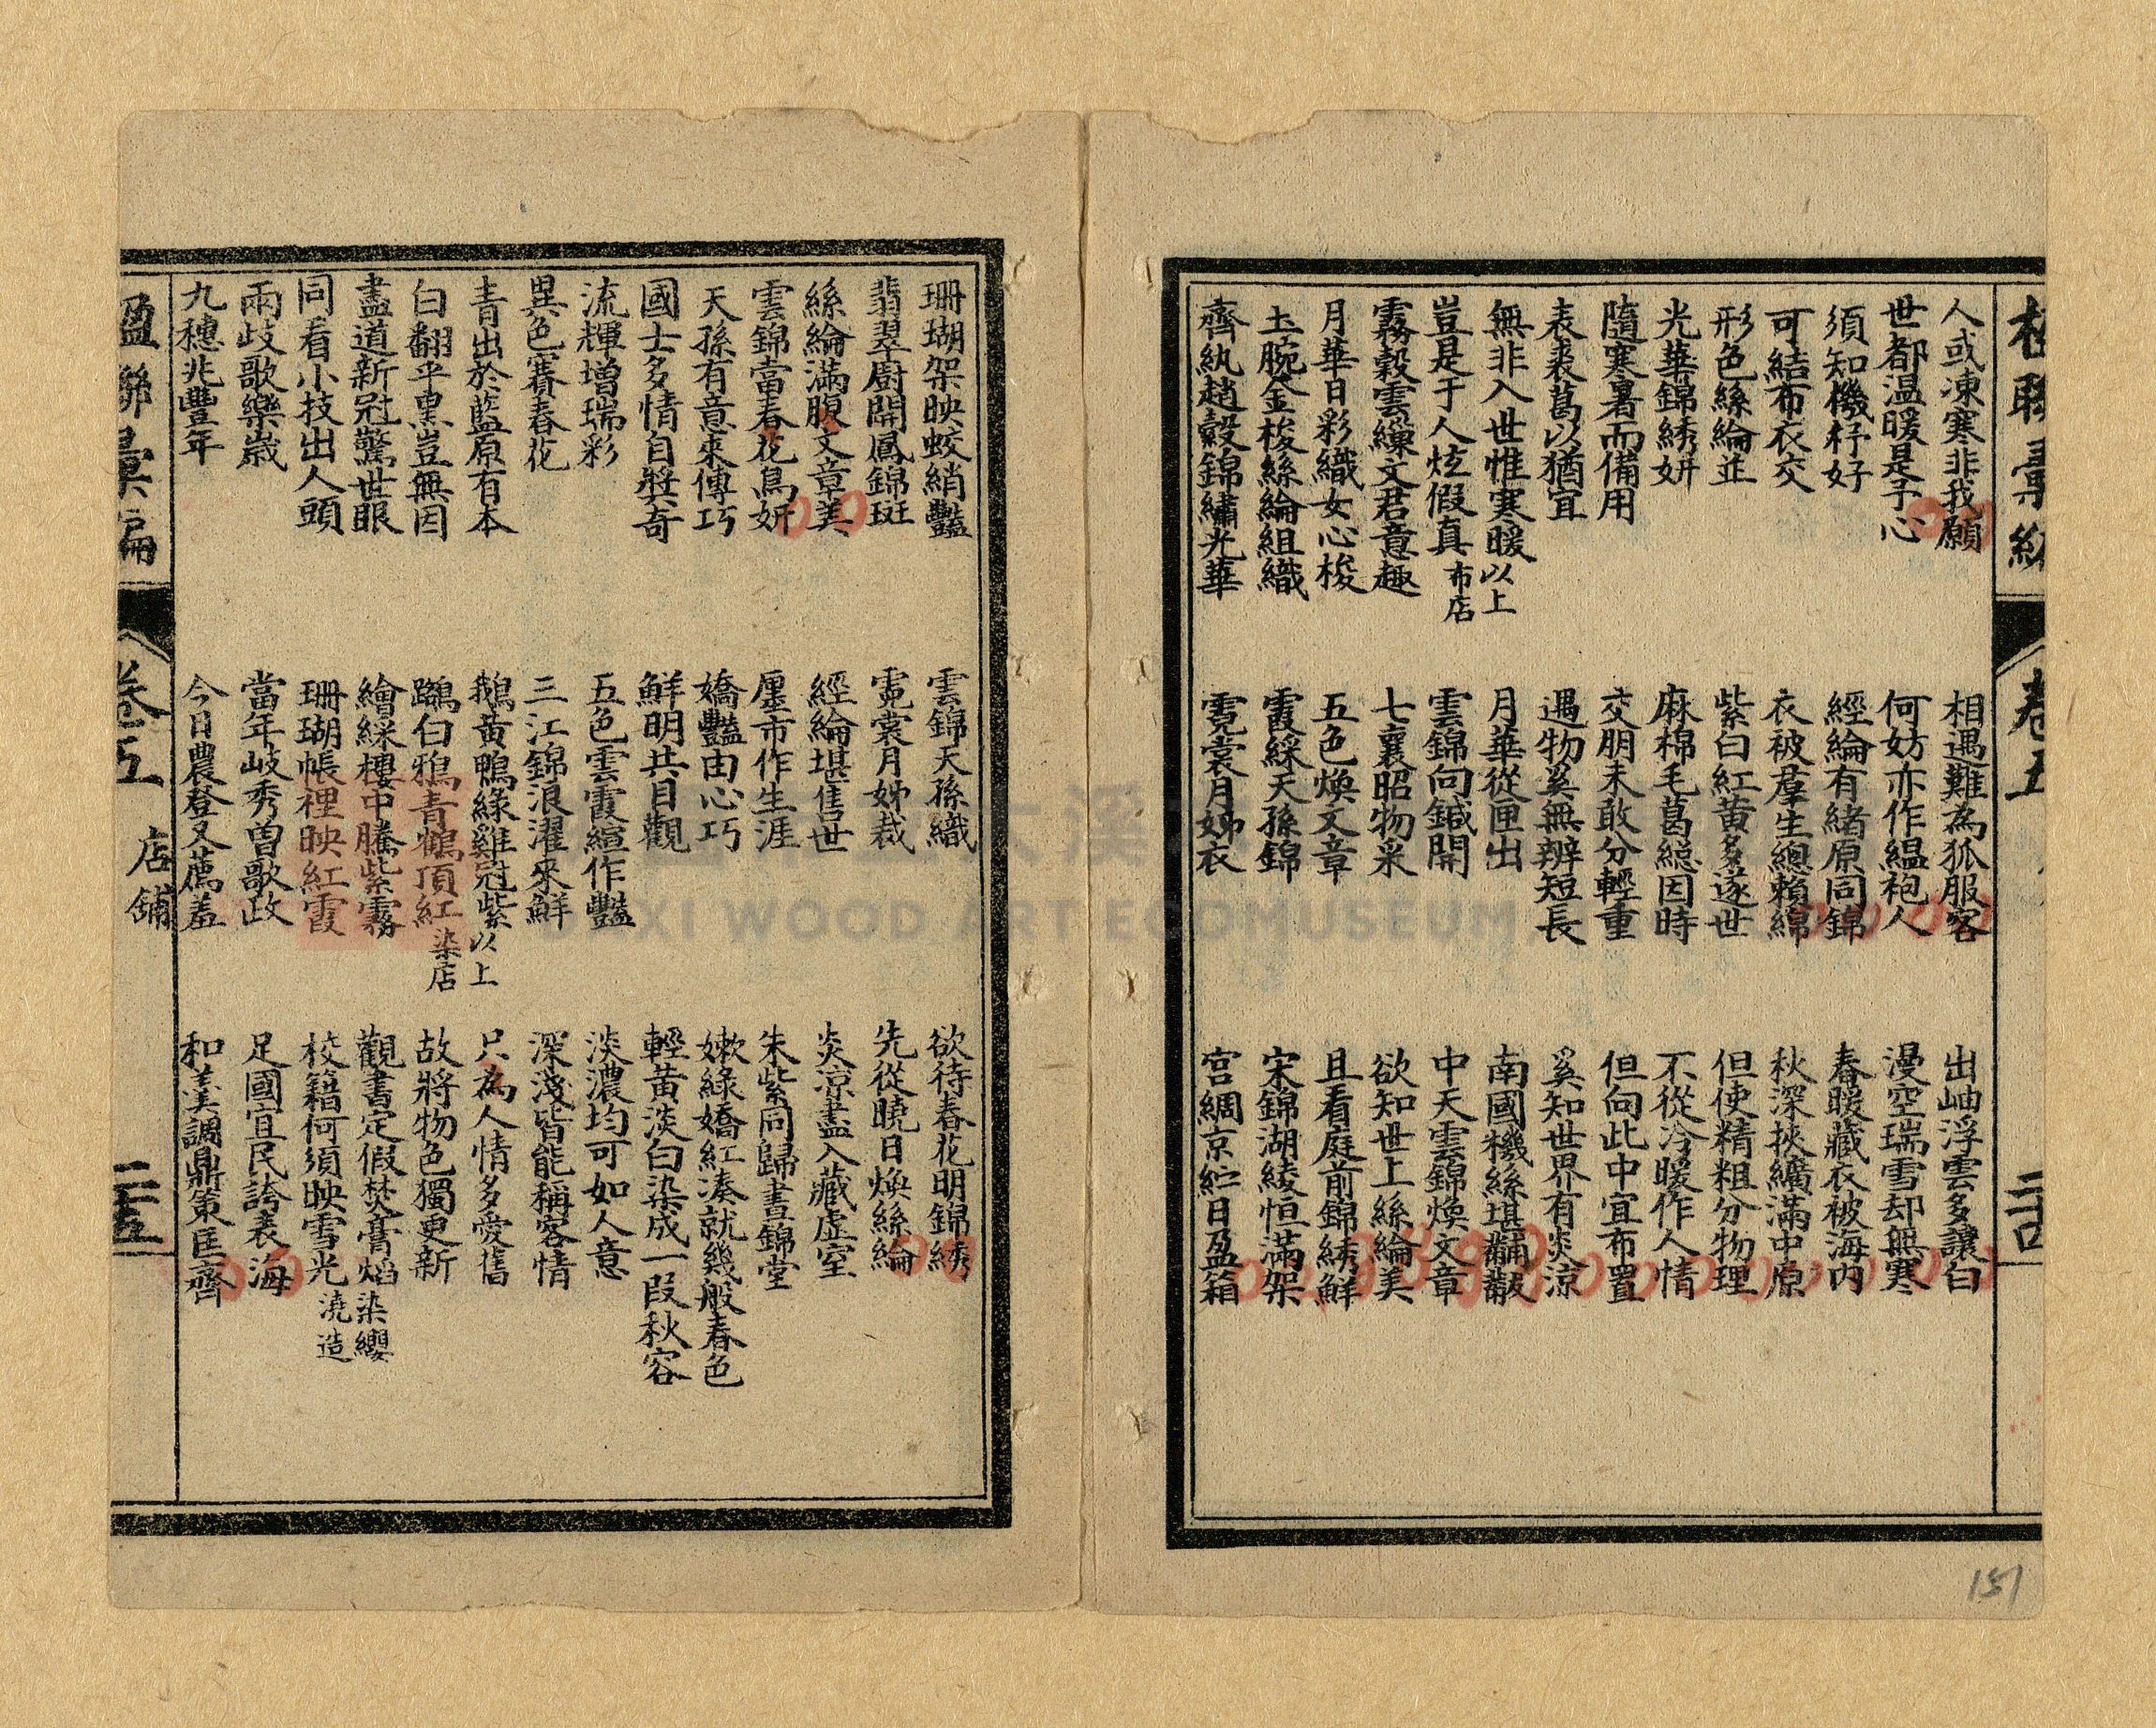 楹聯彙編 卷五 二十四
人或凍寒非我願 相遇難為狐服客 出岫浮雲多讓白
世都温暖是予心 何妨亦作緼袍人 漫空瑞雪却無寒
須知機杼好 經綸有緒原同錦 春暖藏衣被海内
可結布衣交 衣被羣生總賴綿 秋深挾纊滿中原
形色絲綸並 紫白紅黄多逐世 但使精粗分物理
光華錦綉妍 麻棉毛葛總因時 不從冷暖作人情
隨寒暑而備用 交朋未敢分輕重 但向此中宜布置
表裘葛以猶宜 遇物奚無辨短長 奚知世界有炎涼
無非入世惟寒暖以上 月華從匣出 南國機絲堪黼黻
豈是于人炫假真布店 雲錦向鍼開 中天雲錦煥文章
霧縠雲繅文君意趣 七襄昭物采 欲知世上絲綸美
月華日彩織女心梭 五色煥文章 且看庭前錦綉鮮
玉腕金梭絲綸組織 霞綵天孫錦 宋錦湖綾恒滿架
齊紈趙縠錦繡光華 霓裳月姊衣 宫綢京紵日盈箱
珊瑚架映蛟綃豔 雲錦天孫織 欲待春花明錦綉
翡翠厨開鳳錦斑 霓裳月姊裁 先從曉日煥絲綸
絲綸滿腹文章美 經綸堪售世 炎凉盡入藏虚室
雲錦當春花鳥妍 廛市作生涯 朱紫同歸晝錦堂
天孫有意來傳巧 嬌豔由心巧 嫩綠嬌紅湊就幾般春色
國士多情自獎奇 鮮明共目觀 輕黄淡白染成一叚秋容
流輝增瑞彩 五色雲霞縇作豔 淡濃均可如人意
異色賽春花 三江錦浪濯來鮮 深淺皆能稱客情
青出於藍原有本 鵝黄鴨綠雞冠紫以上 只為人情多愛舊
白翻乎黑豈無因 鷗白鴉青鶴頂紅染店 故將物色獨更新
盡道新冠驚世眼 繪綵樓中騰紫霧 觀書定假焚膏焰染纓
同看小技出人頭 珊瑚帳裡映紅霞 校籍何須映雪光澆造
兩歧歌樂歲 當年岐秀曾歌政 足國宜民誇表海
九穗兆豐年 今日農登又薦羞 和羹調鼎策匡齊
楹聯彙編 卷五 店鋪 二十五
151